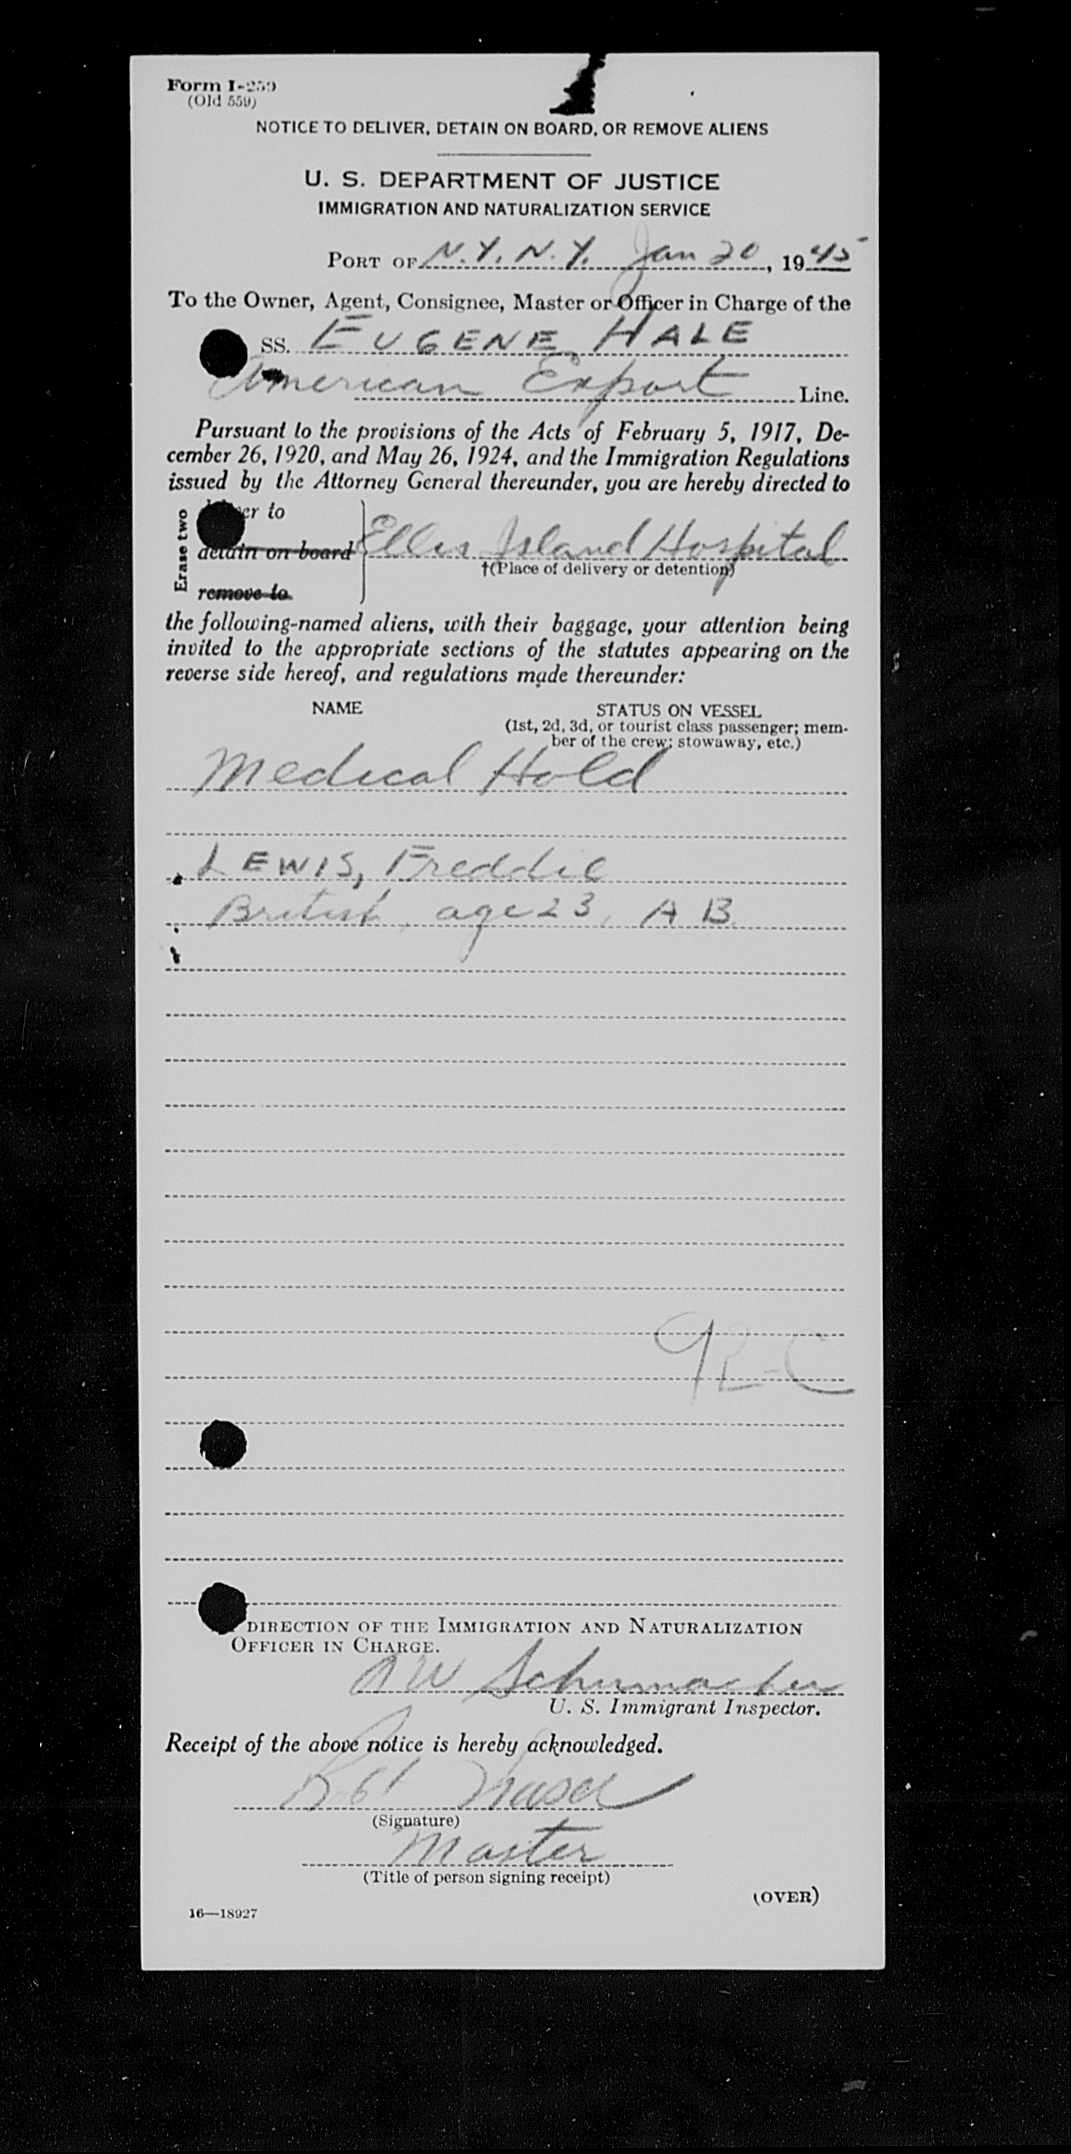 Form I-259
(Old 559)
NOTICE TO DELIVER, DETAIN ON BOARD, OR REMOVE ALIENS
U. S. DEPARTMENT OF JUSTICE
IMMIGRATION AND NATURALIZATION SERVICE
PORT OF N.Y. N.Y. Jan 20, 1945
To the Owner, Agent, Consignee, Master or Officer in Charge of the
SS. EUGENE HALE
American Export Line.
Pursuant to the provisions of the Acts of February 5, 1917, De-
cember 26, 1920, and May 26, 1924, and the Immigration Regulations
issued by the Attorney General thereunder, you are hereby directed to
Erase two
er to
detain on board Ellis Island Hospital
†(Place of delivery or detention)
remove to
the following-named aliens, with their baggage, your attention being
invited to the appropriate sections of the statutes appearing on the
reverse side hereof, and regulations made thereunder:
NAME STATUS ON VESSEL
(1st, 2d, 3d, or tourist class passenger; mem-
ber of the crew; stowaway, etc.)
Medical Hold
LEWIS, Freddie
British, age 23, A B.
DIRECTION OF THE IMMIGRATION AND NATURALIZATION
OFFICER IN CHARGE.
Schumacher
U. S. Immigrant Inspector.
Receipt of the above notice is hereby acknowledged.
(Signature)
Master
(Title of person signing receipt)
(OVER)
16—18927